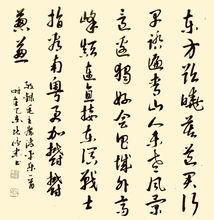 东方欲晓莫道君行
早踏遍青山人未老风景
这边独好会昌城外高
峰颠连直接东溟战士
指看南粤更加鬱鬱
葱葱
敬録毛主席清平乐一首
时在乙未
书